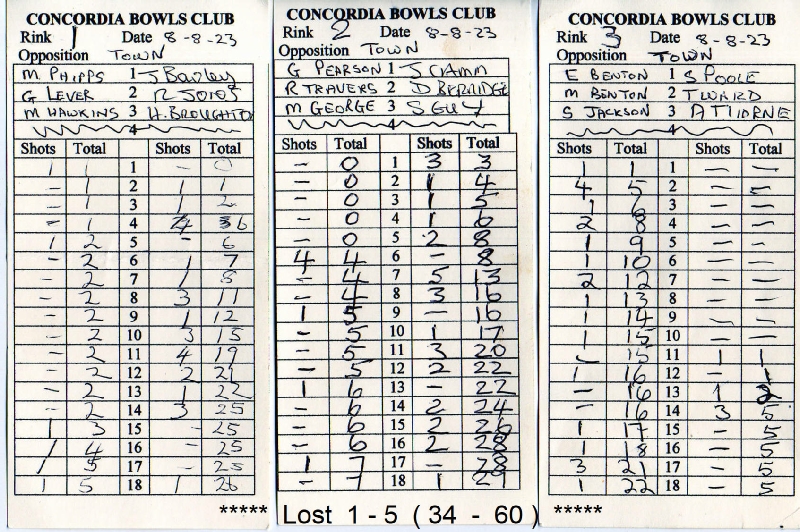 CONCORDIA BOWLS CLUB
Rink 1 Date 8-8-23
Opposition TOWN
M PHIPPS 1 J Bayley
G LEVER 2
M HAWKINS 3 H. BROUGHTON
4
Shots Total Shots Total
1 1 1 - 0
- 1 2 1 1
- 1 3 1 2
- 1 4 4 6
1 2 5 - 6
- 2 6 1 7
- 2 7 1 8
- 2 8 3 11
- 2 9 1 12
- 2 10 3 15
- 2 11 4 19
- 2 12 2 21
- 2 13 1 22
- 2 14 3 25
1 3 15 - 25
1 4 16 - 25
1 5 17 - 25
5 18 1 26
*****
CONCORDIA BOWLS CLUB
Rink 2 Date 8-8-23
Opposition TOWN
G PEARSON 1 J CLAMM
R TRAVERS 2 D BERRIDGE
M GEORGE 3 S GUY
4
Shots Total Shots Total
- 0 1 3 3
- 0 2 1 4
- 0 3 1 5
- 0 4 1 6
- 0 5 2 8
4 4 6 - 8
- 4 7 5 13
- 4 8 3 16
1 5 9 - 16
- 5 10 1 17
- 5 11 3 20
- 5 12 2 22
1 6 13 - 22
- 6 14 2 24
- 6 15 2 26
- 6 16 2 28
1 7 17 - 28
- 7 18 1 29
Lost 1 - 5 ( 34 - 60 )
CONCORDIA BOWLS CLUB
Rink 3 Date 8-8-23
Opposition TOWN
E BENTON 1 S POOLE
M BENTON 2 T WARD
S JACKSON 3 A TIARNE
4
Shots Total Shots Total
1 1 1 - -
4 5 2 - -
1 6 3 - -
2 8 4 - -
1 9 5 - -
1 10 6 - -
2 12 7 - -
1 13 8 - -
1 14 9 - -
1 15 10 - -
- 15 11 1 1
1 16 12 - 1
- 16 13 1 2
- 16 14 3 5
1 17 15 - 5
1 18 16 - 5
3 21 17 - 5
1 22 18 - 5
*****